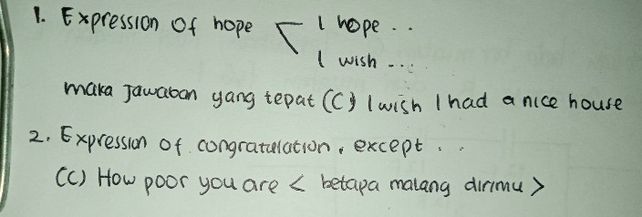 1. Expression of hope < I hope ..
I wish ...
maka Jawaban yang tepat (C) I wish I had a nice house
2. Expression of congratulation, except . .
(C) How poor you are < betapa malang dirimu >